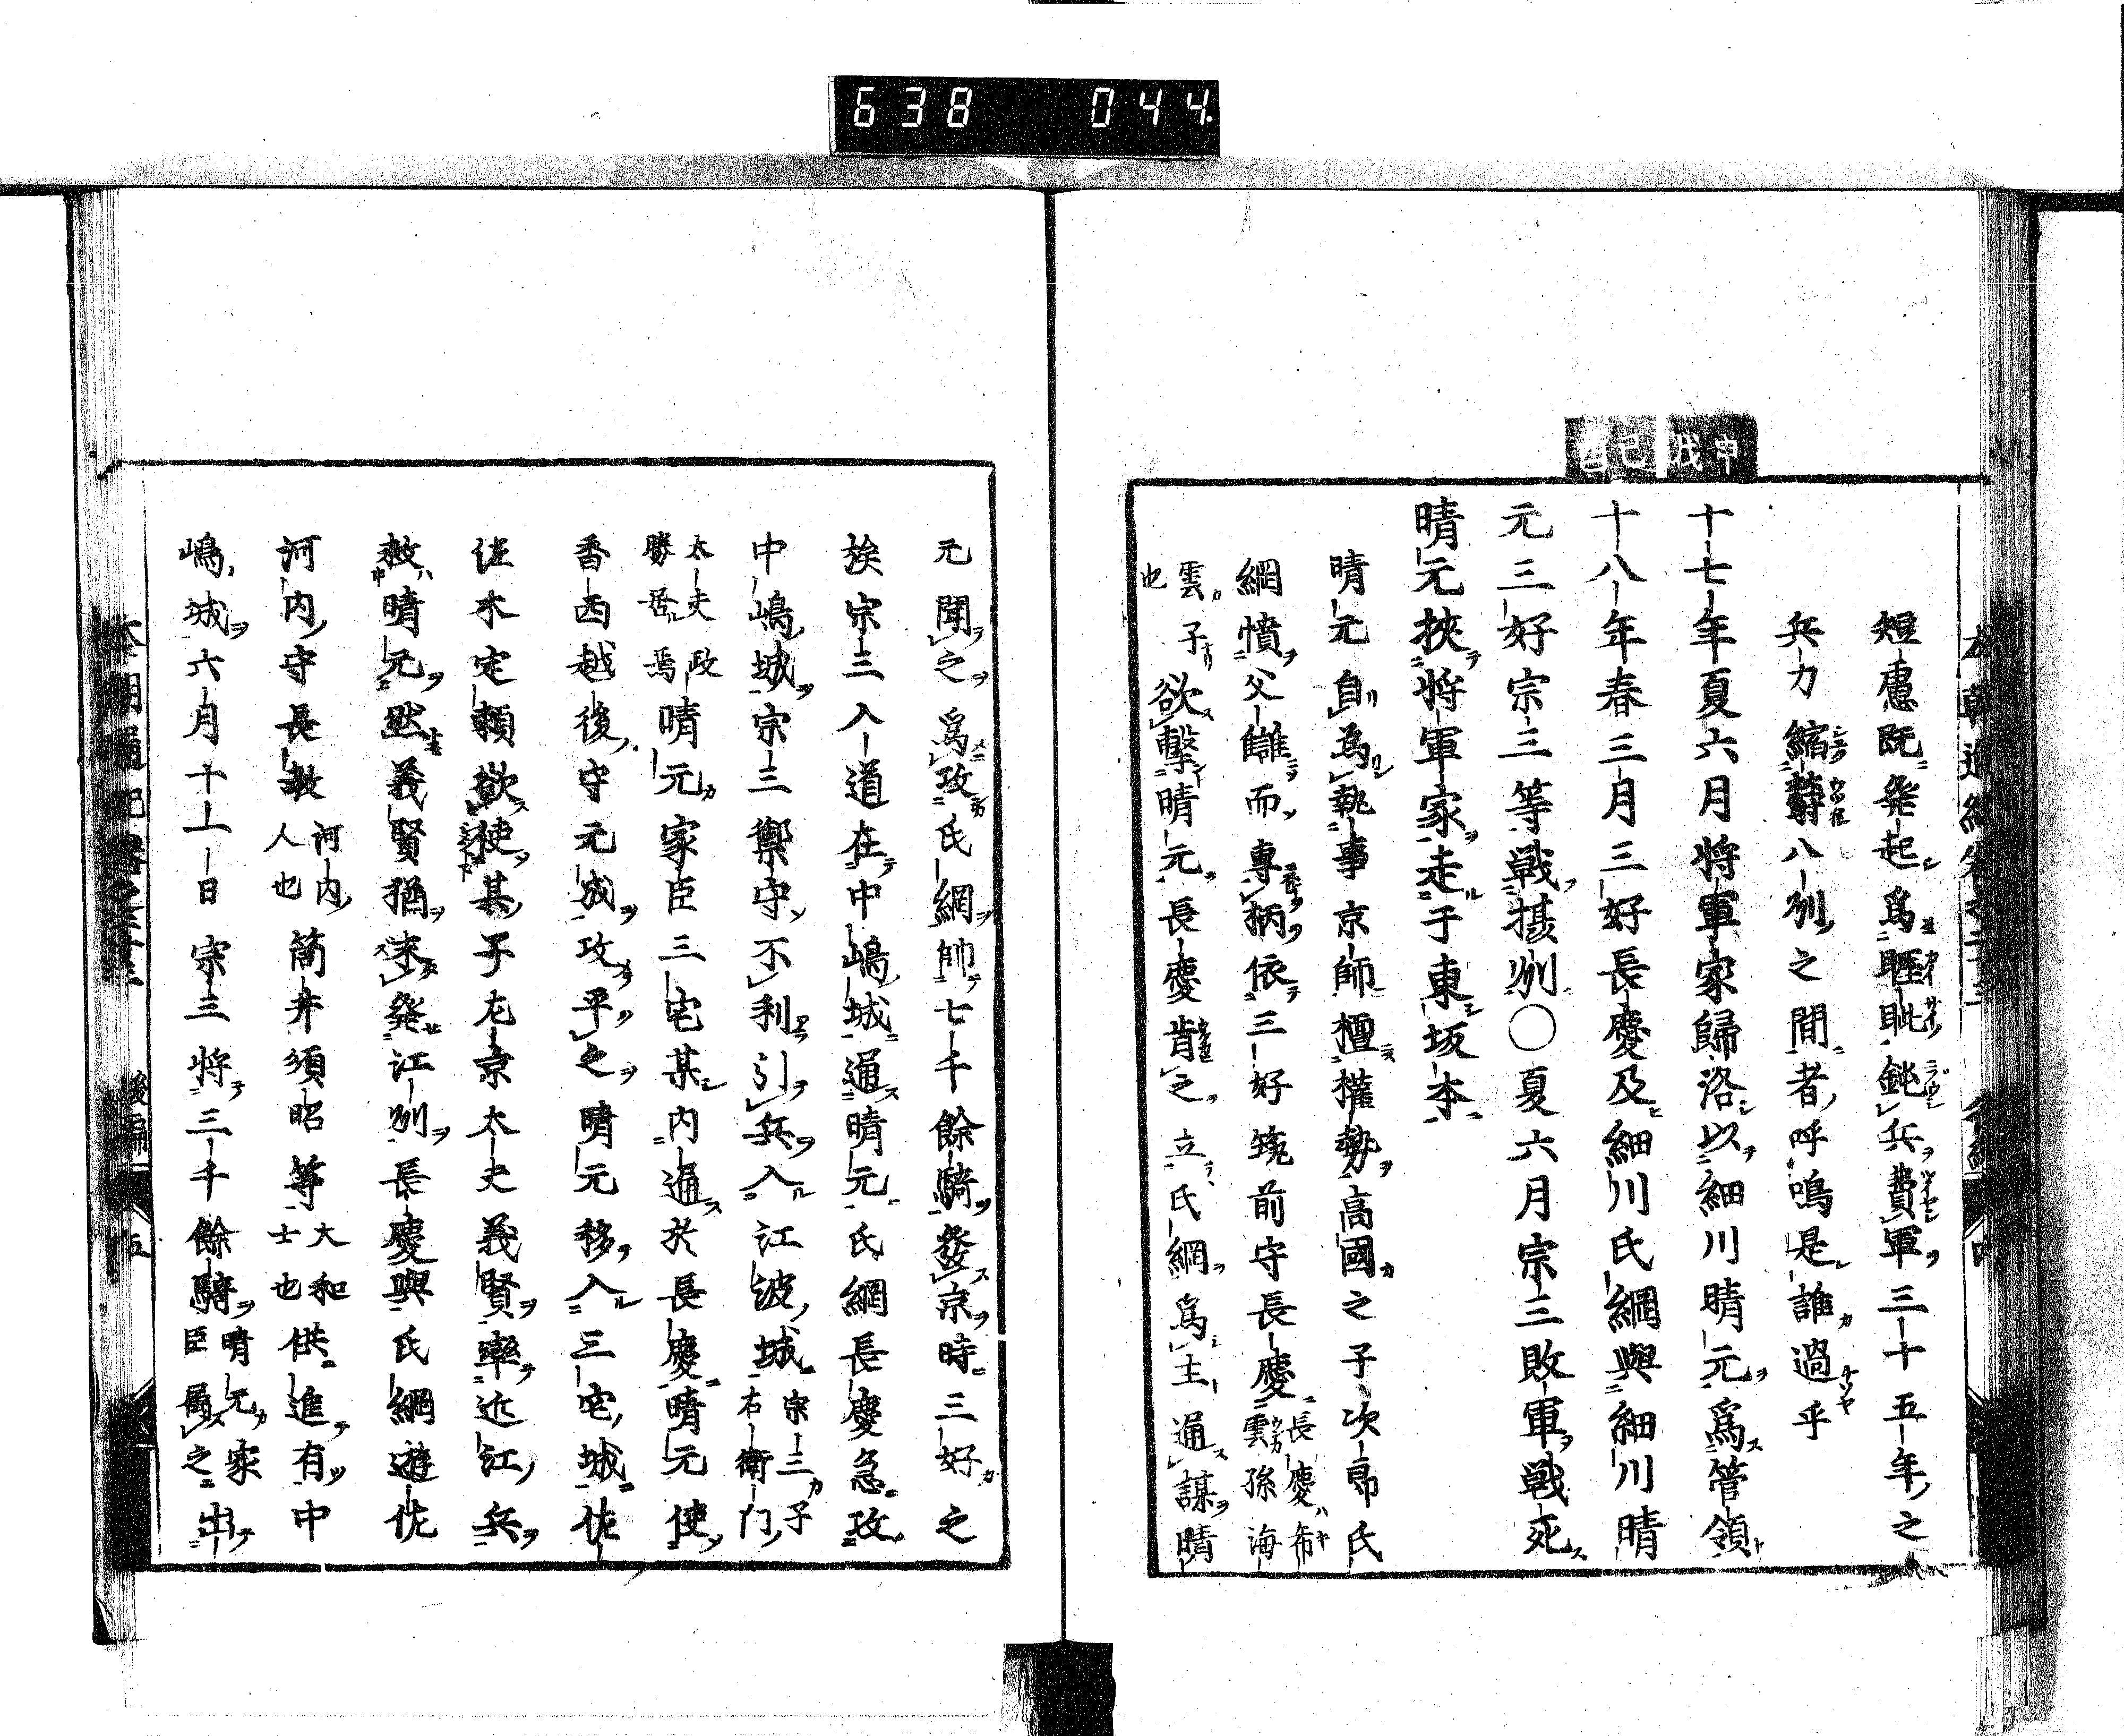 638 044.
戊申
己酉
短慮既発起爲睚眦鈍兵費軍三十五年之
兵力縮蹙八州之間者呼嗚是誰過乎
十七年夏六月将軍家歸洛以細川晴元爲管領
十八年春三月三好長慶及細川氏綱與細川晴
元三好宗三等戦摂州〇夏六月宗三敗軍戦死
晴元挾将軍家走于東坂本
晴元自爲執事京師擅權勢高國之子次郎氏
綱憤父讎而專柄依三好筑前守長慶長慶ハ希雲孫海
雲子也欲撃晴元長慶肯之立氏綱爲主通謀晴
元聞之爲攻氏綱帥七千餘騎發京時三好之
族宗三入道在中嶋城通晴元氏綱長慶急攻
中嶋城宗三禦守不利引兵入江波城宗三子右衛門
太夫政勝居焉晴元家臣三宅某内通於長慶晴元使
香西越後守元成攻平之晴元移入三宅城佐
佐木定頼欲使其子左京太夫義賢率近江兵
救晴元然義賢猶未発江州長慶與氏綱遊佐
河内守長教河内人也筒井須昭等大和士也供進有中
嶋城六月十一日宗三将三千餘騎晴元家臣屬之出
後編 五